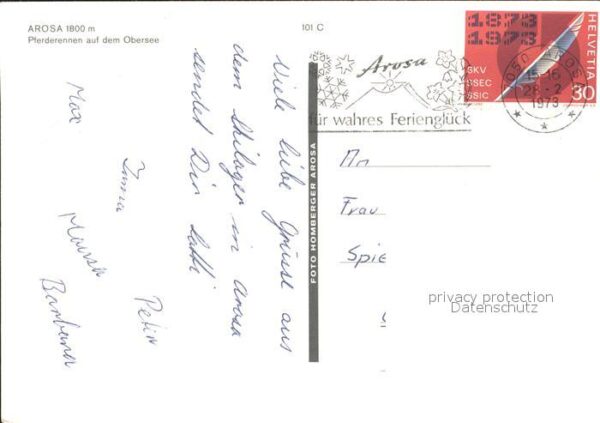 AROSA 1800 m
Pferderennen auf dem Obersee
101 C
Viele liebe Grüsse aus
dem Skilager in Arosa
sendet Dir
Max
Petra
Barbara
FOTO HOMBERGER AROSA
Arosa
für wahres Ferienglück
1873
1973
HELVETIA
SKV
SSEC
SSIC
30
7050 AROSA
15-16
28.-2
1973
An
Frau
Spie
privacy protection
Datenschutz